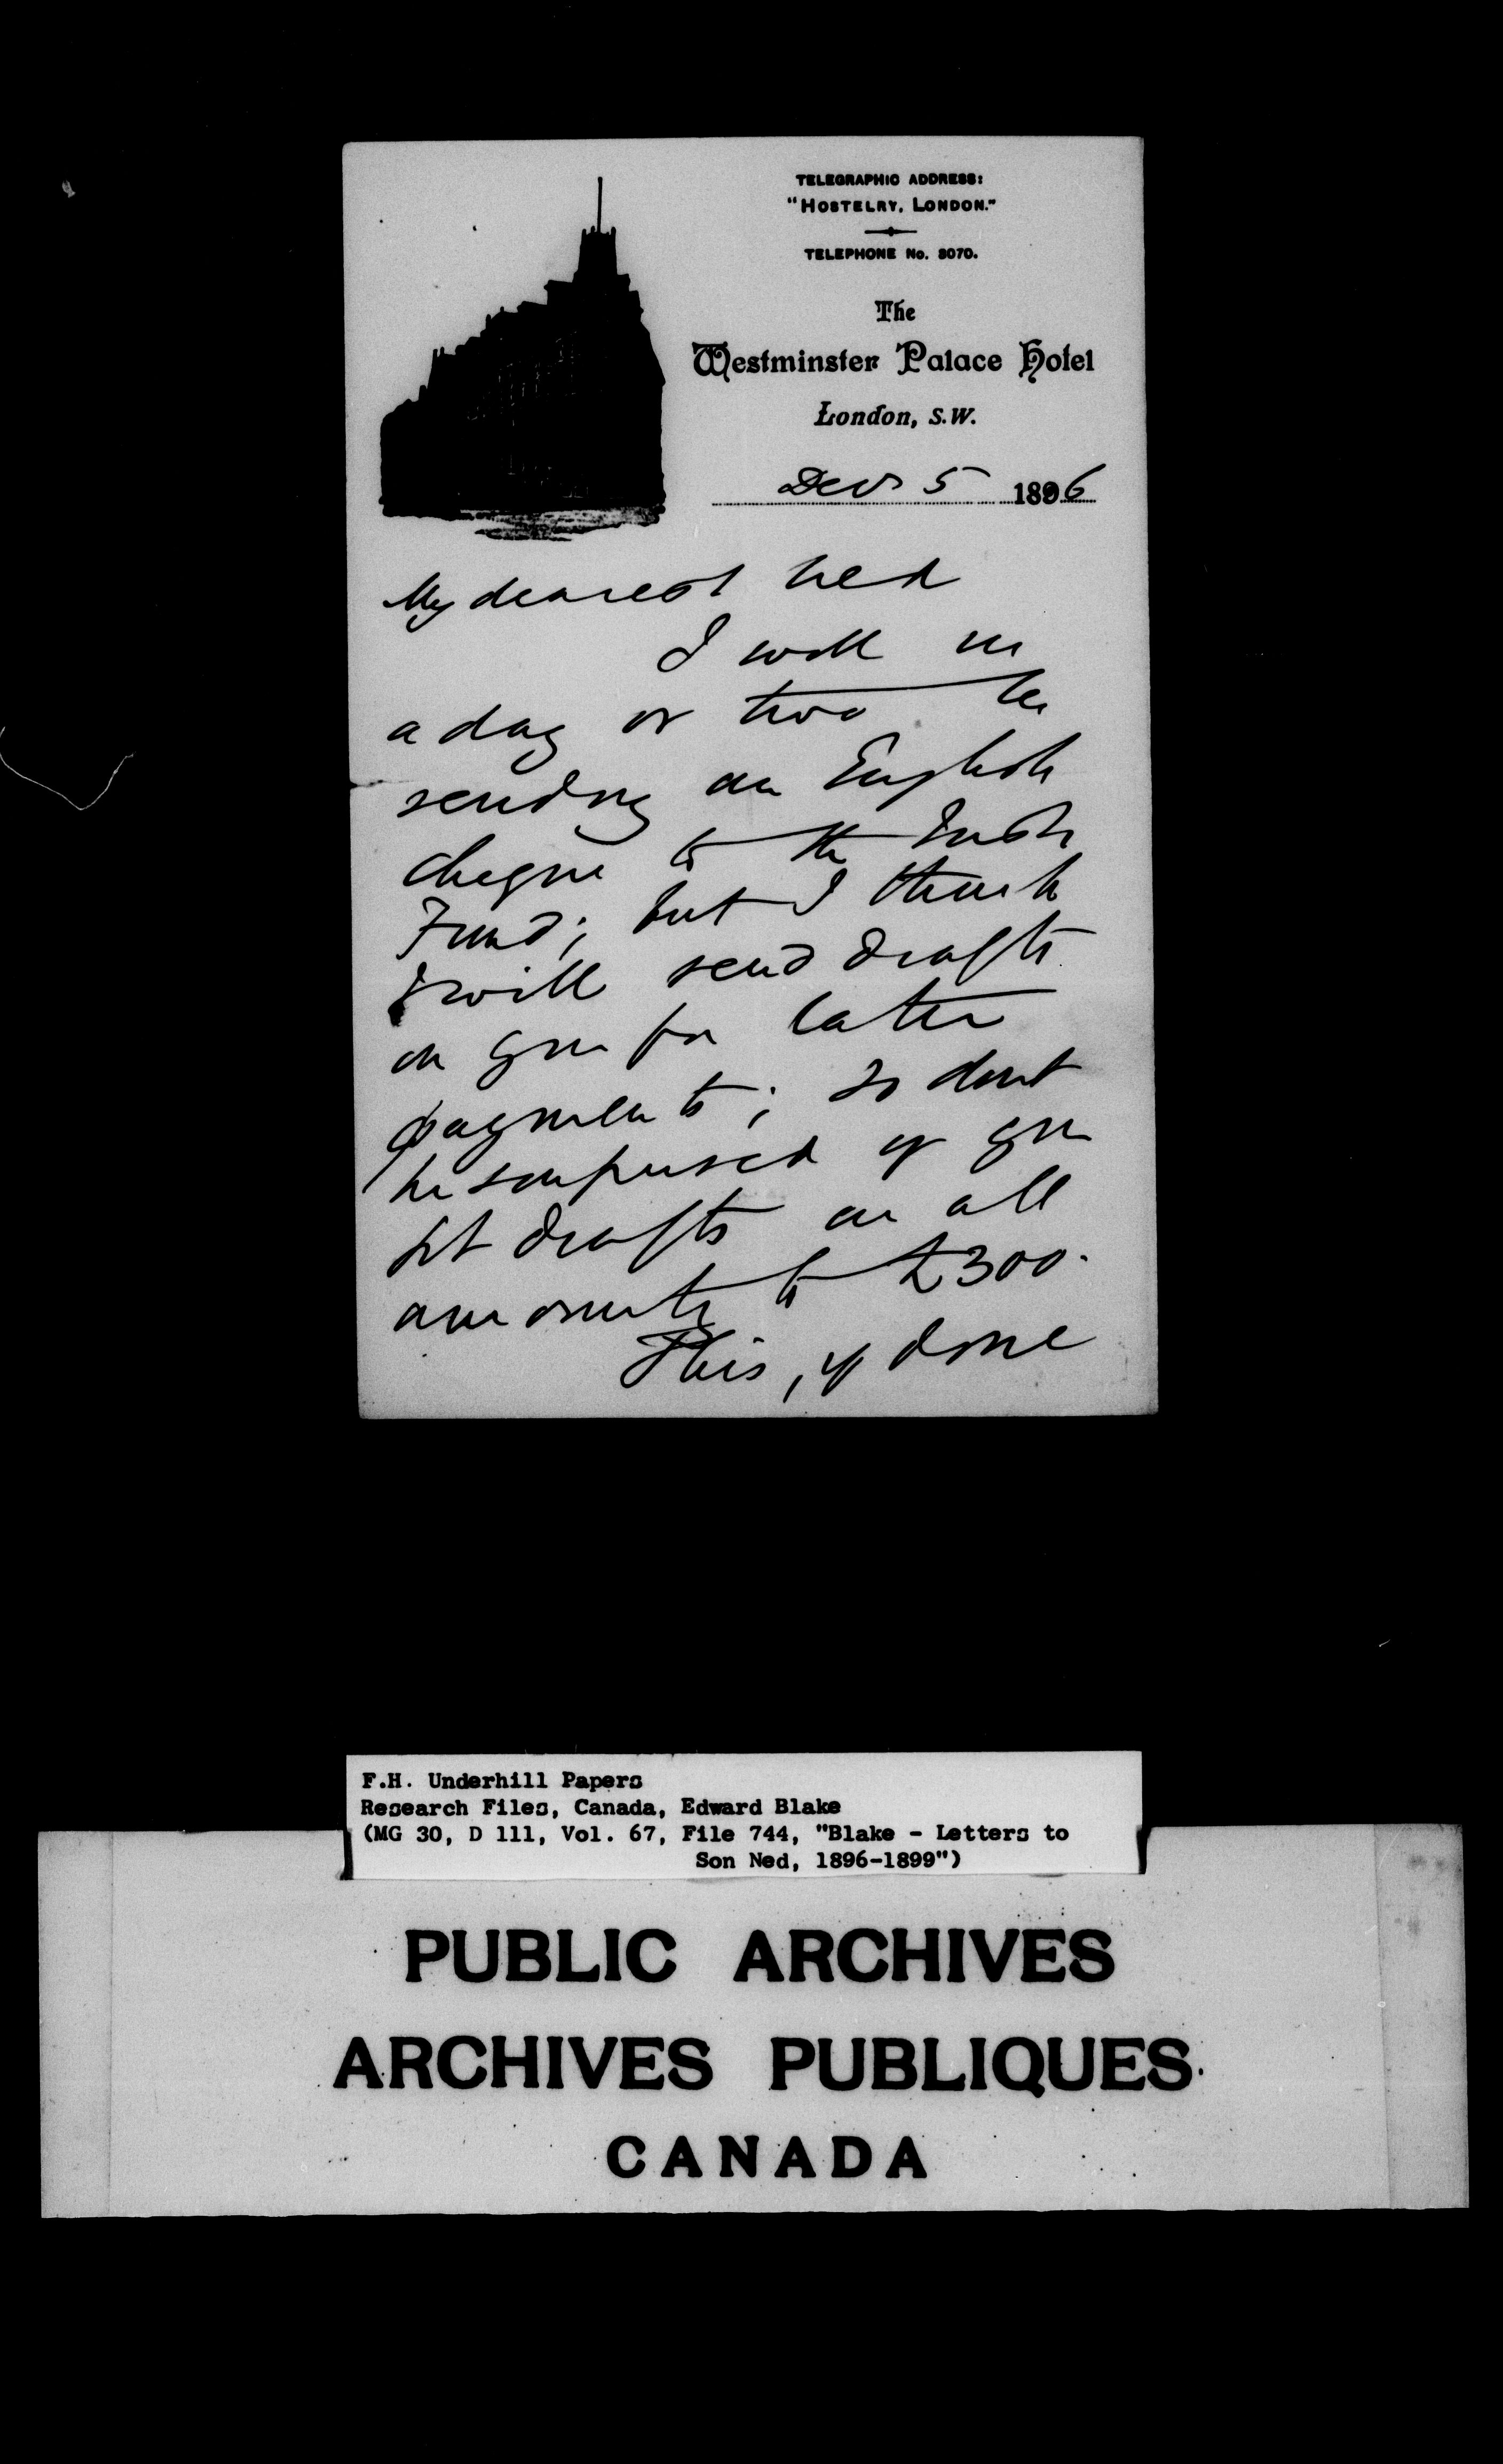 TELEGRAPHIC ADDRESS:
"HOSTELRY, LONDON."
TELEPHONE No. 3070.
The
Westminster Palace Hotel
London, S.W.
Dec 5 1896
My dearest Ned
I will in
a day or two be
sending an English
cheque to the Irish
Fund; but I think
I will send drafts
on you for later
payments; so dont
be surprised if you
get drafts in all
amounting to £300.
This, if done
F.H. Underhill Papers
Research Files, Canada, Edward Blake
(MG 30, D 111, Vol. 67, File 744, "Blake - Letters to
Son Ned, 1896-1899")
PUBLIC ARCHIVES
ARCHIVES PUBLIQUES
CANADA